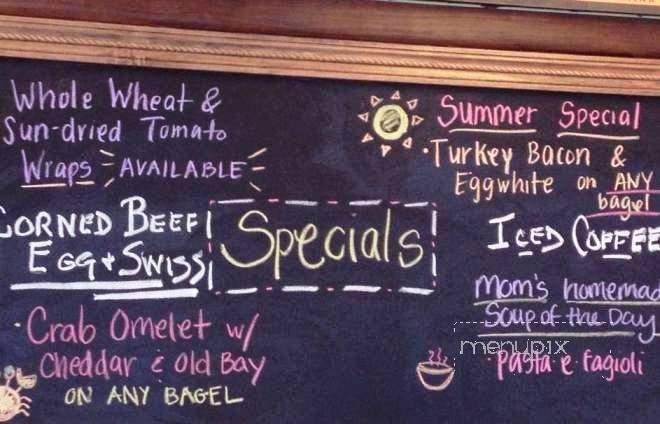 Whole Wheat &
Sun-dried Tomato
Wraps AVAILABLE
CORNED BEEF
EGG + SWISS
· Crab Omelet w/
Cheddar & Old Bay
ON ANY BAGEL
Specials
Summer Special
· Turkey Bacon &
Eggwhite on ANY
bagel
ICED COFFEE
Mom's homemad
Soup of the Day
menupix
· Pasta e fagioli